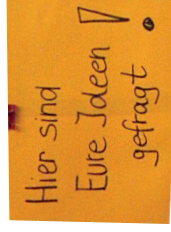 Hier sind
Eure Ideen
gefragt!